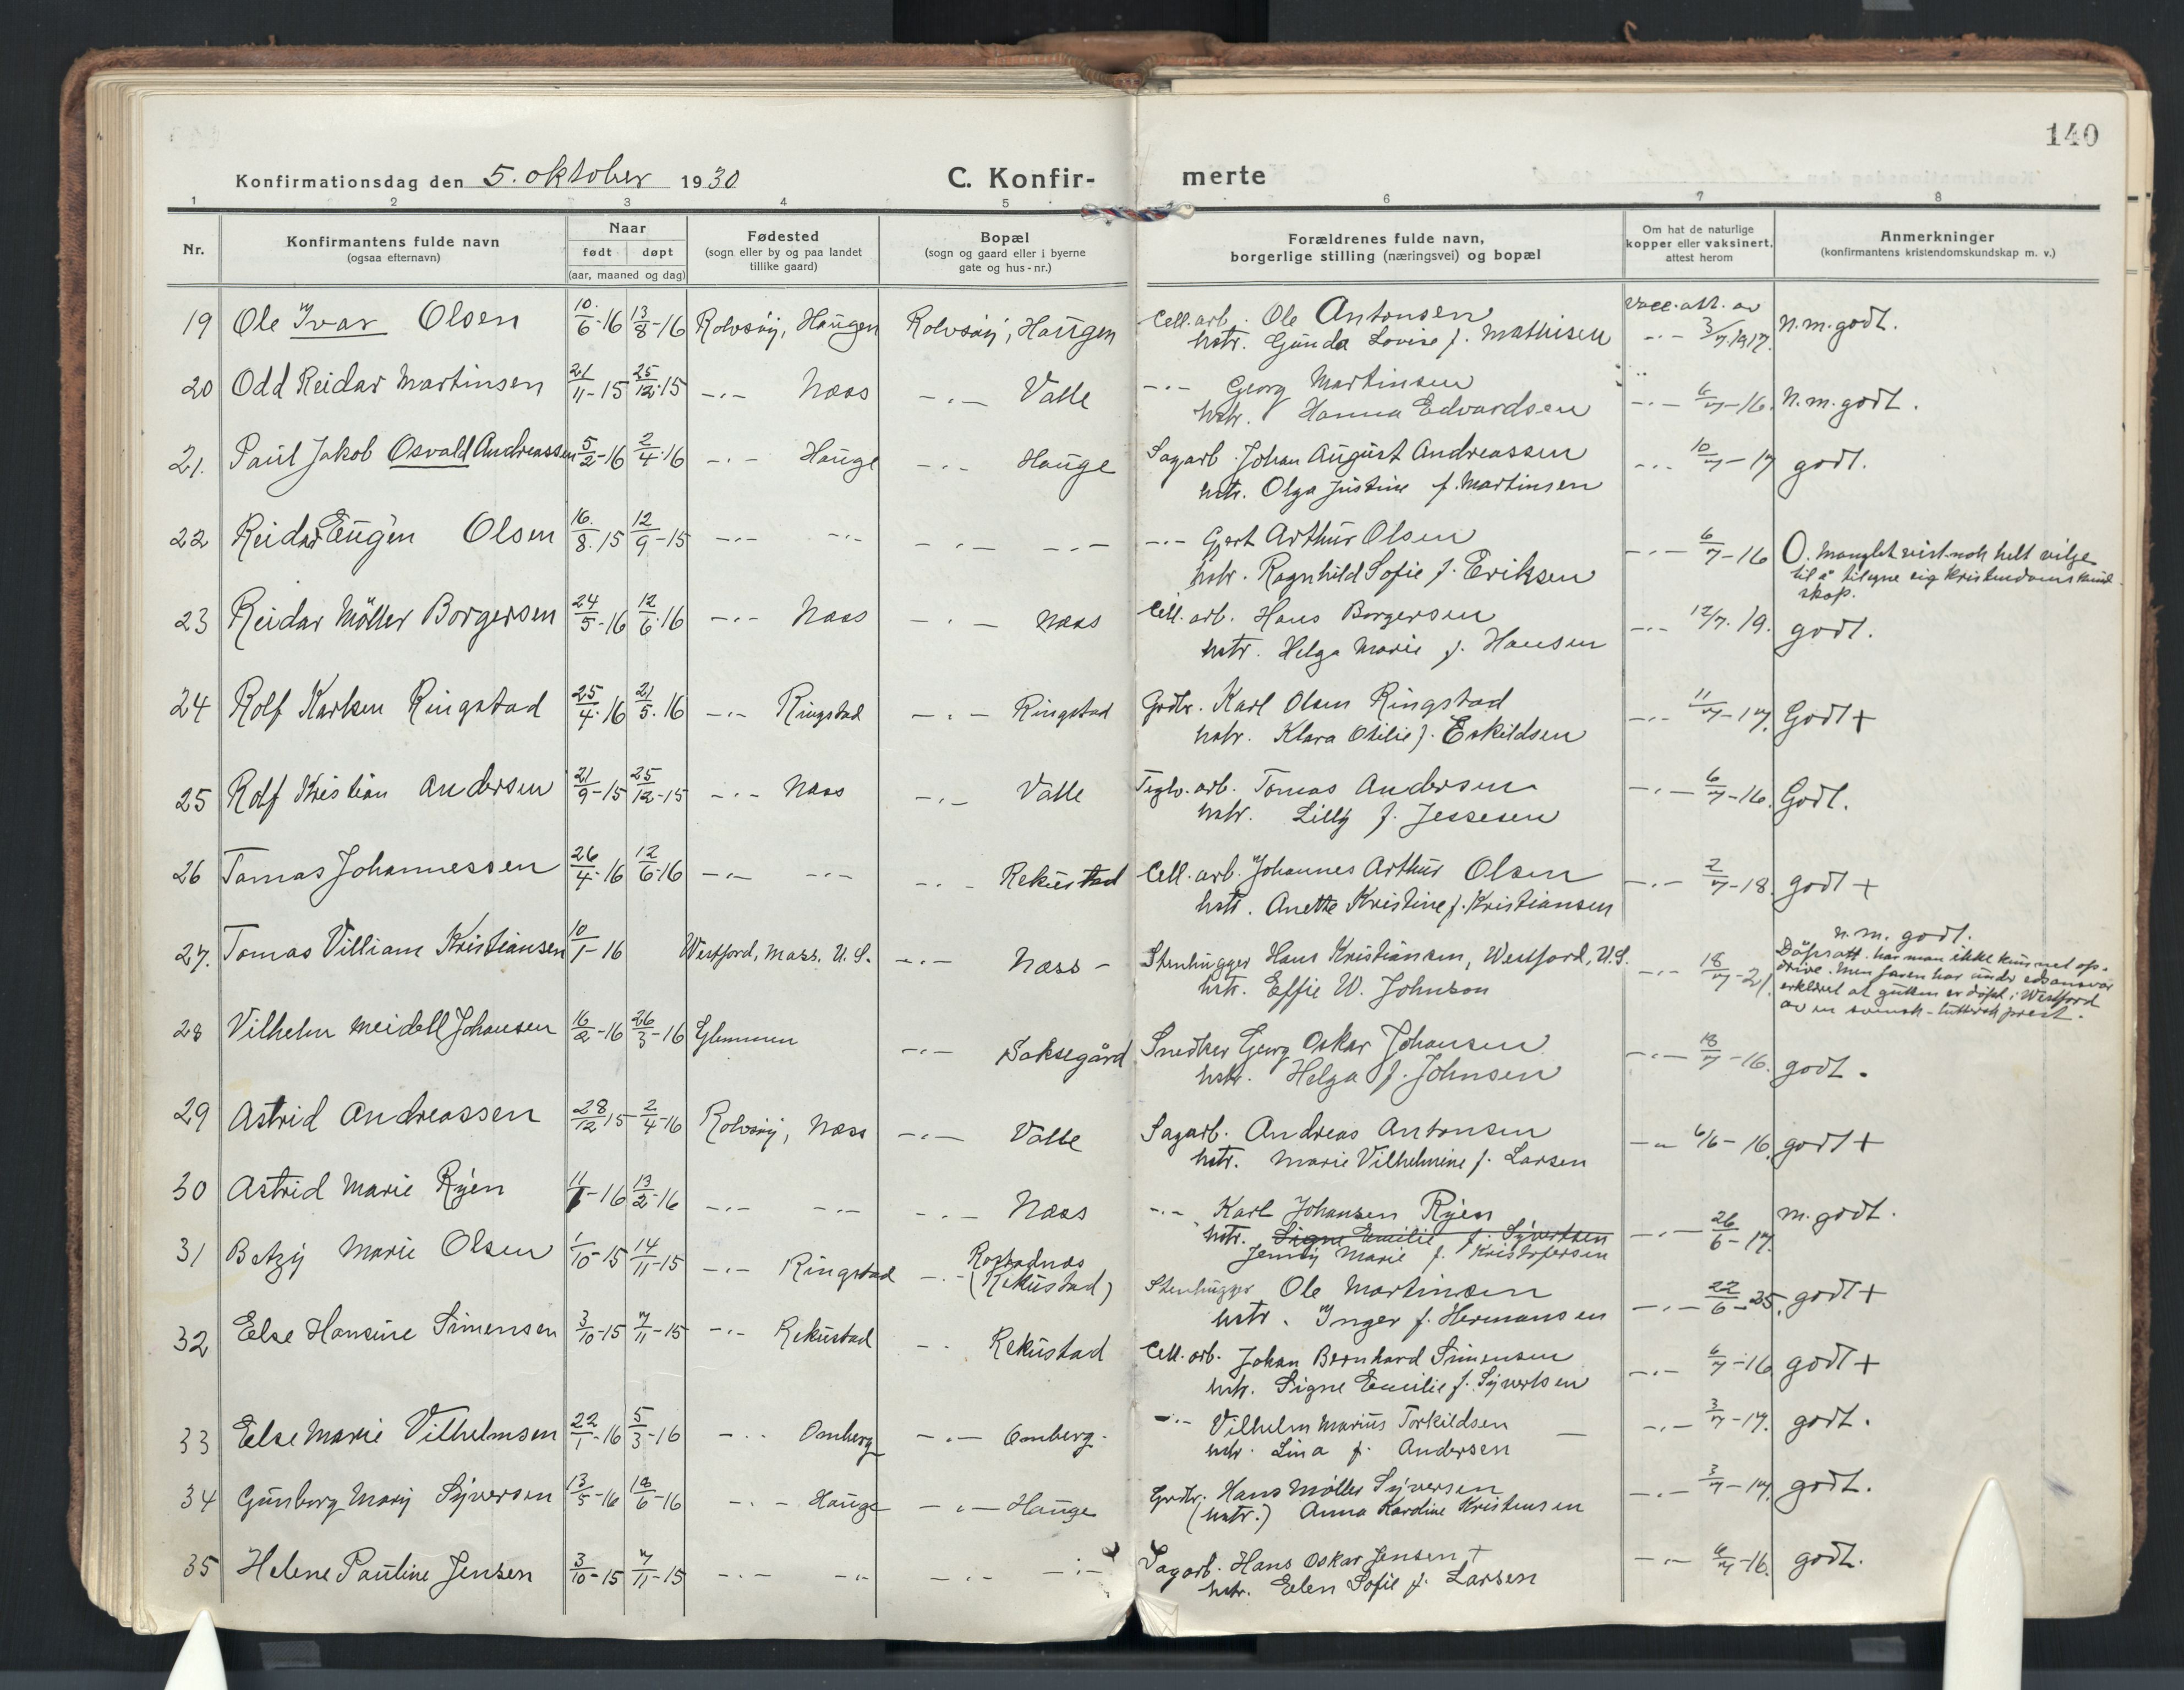 140
Konfirmationsdag den 5. oktober 1930
C. Konfir- merte
1 2 3 4 5 6 7 8
Nr.
Konfirmantens fulde navn
(ogsaa efternavn)
Naar
født døpt
(aar, maaned og dag)
Fødested
(sogn eller by og paa landet
tillike gaard)
Bopæl
(sogn og gaard eller i byerne
gate og hus-nr.)
Forældrenes fulde navn,
borgerlige stilling (næringsvei) og bopæl
Om hat de naturlige
kopper eller vaksinert,
attest herom
Anmerkninger
(konfirmantens kristendomskundskap m. v.)
19 Ole Ivar Olsen 10/6-16 13/8-16 Rolvsøy, Haugen Rolvsøy, Haugen Cell.arb. Ole Antonsen Vacc.att. av
hstr. Gunda Lovise f. Mathisen -"- 3/7 1917. N.m.godt.
20 Odd Reidar Martinsen 21/11-15 25/12-15 -"- Næss -"- Valle -"- Georg Martinsen
hstr. Hanna Edvardsen -"- 6/7-16. N.m.godt.
21. Paul Jakob Osvald Andreassen 5/2-16 2/4-16 -"- Hauge -"- Hauge Sagarb. Johan August Andreassen
hstr. Olga Justine f. Martinsen -"- 10/7-17 godt.
22 Reidar Eugen Olsen 16/8-15 12/9-15 -"- -"- -"- -"- -"- Gert Arthur Olsen
hstr. Ragnhild Sofie f. Eriksen -"- 6/7-16 O. Manglet vist-nok helt vilje
til å tilegne sig kristendomskund-
skap.
23 Reidar Möller Borgersen 24/5-16 12/6-16 -"- Næss -"- Næss Cell.arb. Hans Borgersen
hstr. Helga Marie f. Hansen -"- 12/7-19. godt.
24 Rolf Karlsen Ringstad 25/4-16 21/5-16 -"- Ringstad -"- Ringstad Grdbr. Karl Olsen Ringstad
hstr. Klara Otilie f. Eskildsen -"- 11/7-17. Godt +
25 Rolf Kristian Andersen 21/9-15 25/12-15 -"- Næss -"- Valle Teglv.arb. Tomas Andersen
hstr. Lilly f. Jessesen -"- 6/7-16. Godt.
26 Tomas Johannessen 26/4-16 12/6-16 -"- -"- -"- Rekustad Cell.arb. Johannes Arthur Olsen
hstr. Anette Kristine f. Kristiansen -"- 2/7-18. godt +
27. Tomas Villiam Kristiansen 10/1-16 Westford, Mass. U.S. -"- Næss - Stenhugger Hans Kristiansen, Westford, U.S.
hstr. Effie W. Johnson -"- 18/7-21. n.m. godt.
Döpsatt. har man ikke kunnet op-
drive. Men faren har under edsansvar
erklært at gutten er döpt i Westford
av en svensk-luthersk prest.
28 Vilhelm Meidell Johansen 16/2-16 26/3-16 Glemmen -"- Saksegård Snedker Georg Oskar Johansen
hstr. Helga f. Johnsen -"- 18/7-16. godt.
29 Astrid Andreassen 28/12-15 2/4-16 Rolvsøy, Næss -"- Valle Sagarb. Andreas Antonsen
hstr. Marie Vilhelmine f. Larsen -"- 6/6-16. godt +
30 Astrid Marie Ryen 11/1-16 13/2-16 -"- -"- -"- Næss -"- Karl Johansen Ryen
hstr. Signe Emilie f. Syvertsen
Jenny Marie f. Kristofersen -"- 26/6-17. m.godt.
31 Betzy Marie Olsen 1/10-15 14/11-15 -"- Ringstad -"- Rostadnæs
(Rekustad) Stenhugger Ole Martinsen
hstr. Inger f. Hermansen -"- 22/6-25. godt +
32 Else Hansine Simensen 3/10-15 7/11-15 -"- Rekustad -"- Rekustad Cell.arb. Johan Bernhard Simensen
hstr. Signe Emilie f. Syvertsen -"- 6/7-16 godt +
33 Else Marie Vilhelmsen 22/1-16 5/3-16 -"- Omberg -"- Omberg. -"- Vilhelm Marius Torkildsen
hstr. Lina f. Andersen -"- 3/7-17. godt.
34 Gunborg Mary Syversen 13/5-16 18/6-16 -"- Hauge -"- Hauge Grdbr. Hans Möller Syversen
(hstr.) Anna Kardine Kristensen -"- 3/7-17. godt.
35 Helene Pauline Jensen 3/10-15 7/11-15 -"- -"- -"- -"- Sagarb. Hans Oskar Jensen +
hstr. Elen Sofie f. Larsen -"- 6/7-16. godt.